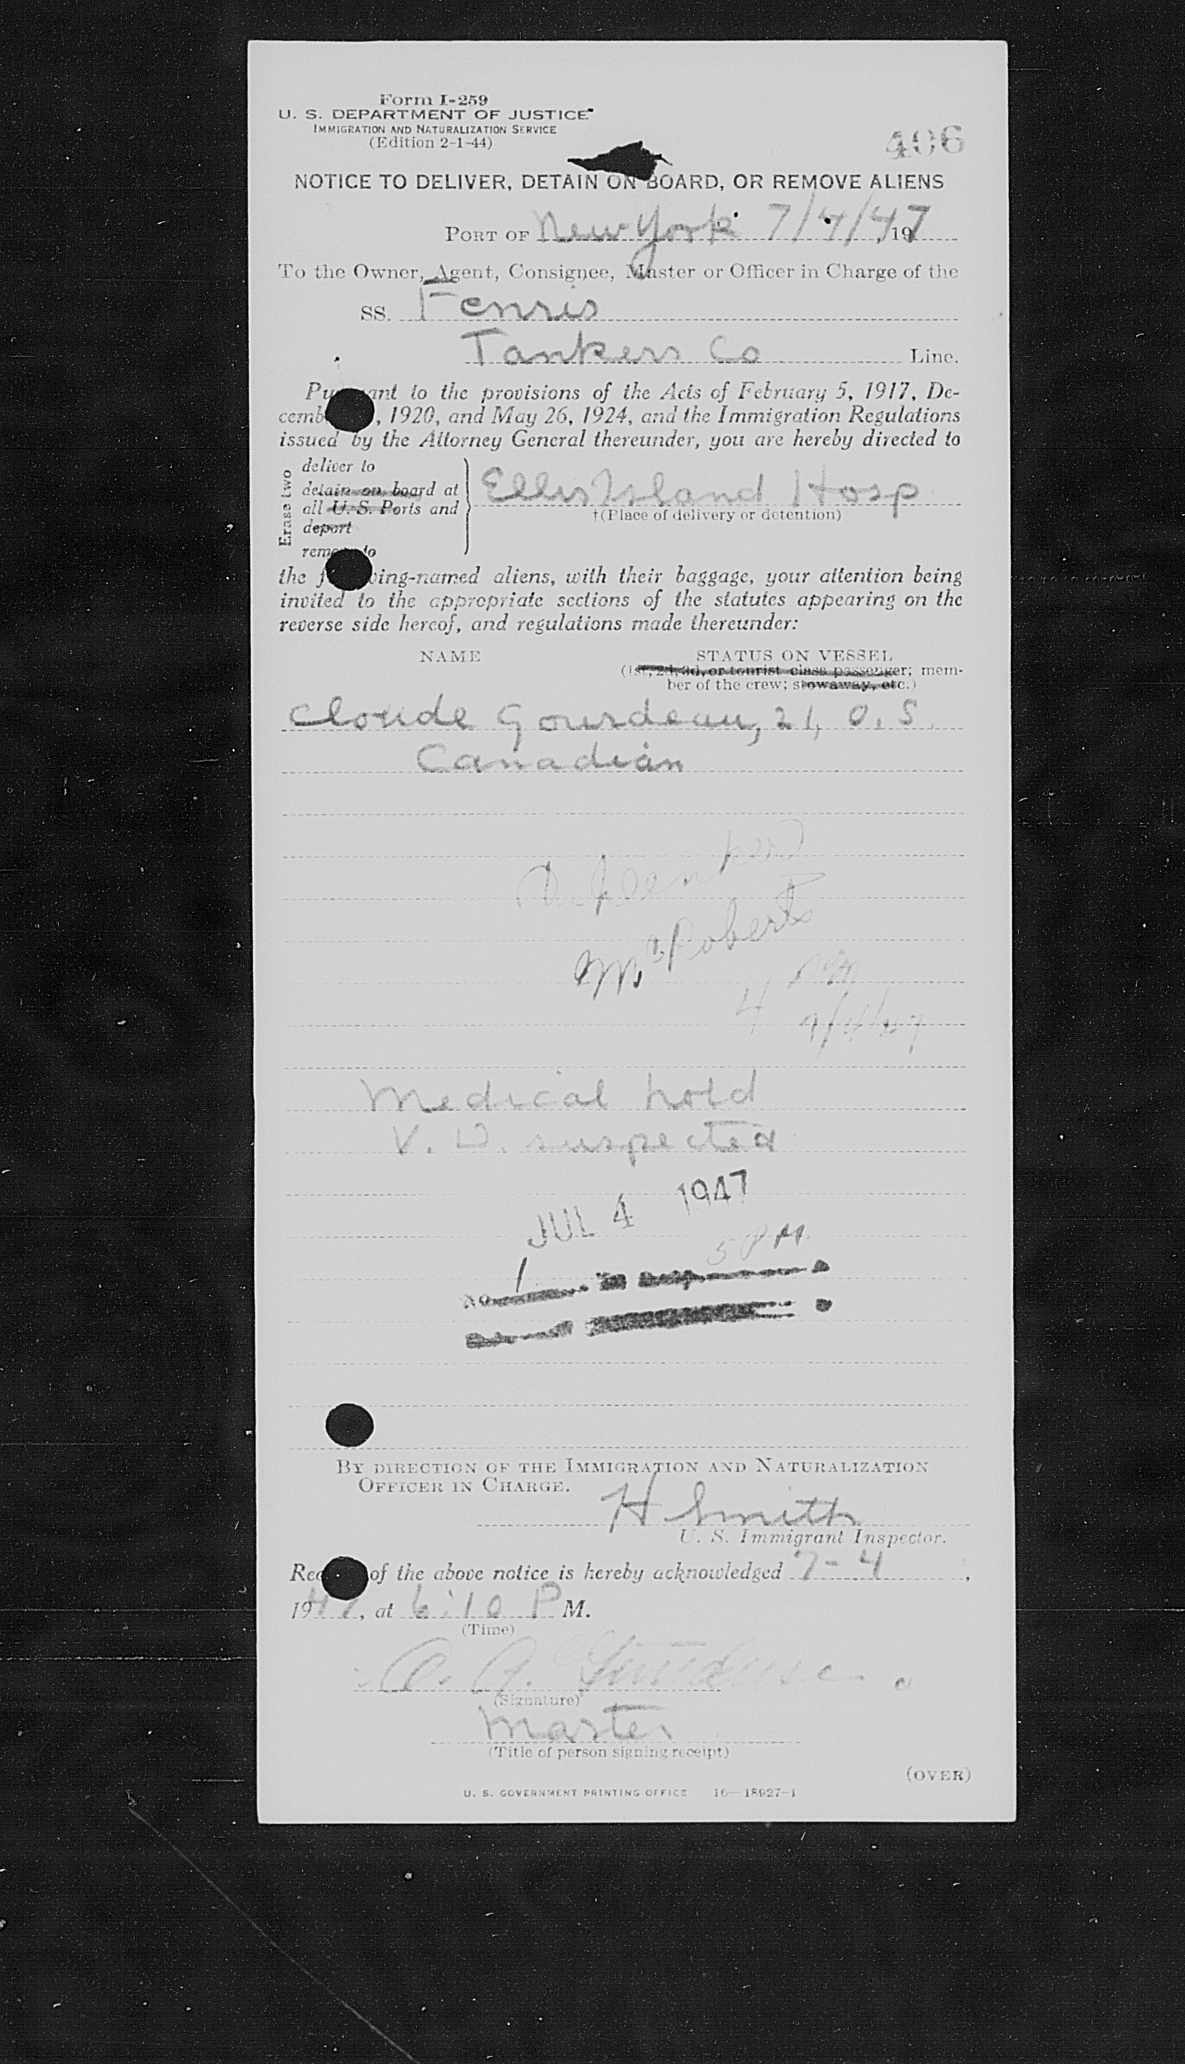 Form I-259
U. S. DEPARTMENT OF JUSTICE
IMMIGRATION AND NATURALIZATION SERVICE
(Edition 2-1-44)
406
NOTICE TO DELIVER, DETAIN ON BOARD, OR REMOVE ALIENS
PORT OF New York 7/4/47 197
To the Owner, Agent, Consignee, Master or Officer in Charge of the
SS. Fenris
Tankers Co Line.
Pu ant to the provisions of the Acts of February 5, 1917, De-
cemb , 1920, and May 26, 1924, and the Immigration Regulations
issued by the Attorney General thereunder, you are hereby directed to
Erase two
deliver to
detain on board at
all U. S. Ports and
deport
remo to
Ellis Island Hosp
†(Place of delivery or detention)
the f wing-named aliens, with their baggage, your attention being
invited to the appropriate sections of the statutes appearing on the
reverse side hereof, and regulations made thereunder:
NAME STATUS ON VESSEL
(1st, 2d, 3d, or tourist class passenger; mem-
ber of the crew; stowaway, etc.)
Cloude Gourdeau, 21, O.S.
Canadian
McRoberts
4
Medical hold
V. D. suspected
JUL 4 1947
5 PM
No. 1
BY DIRECTION OF THE IMMIGRATION AND NATURALIZATION
OFFICER IN CHARGE.
H Smith
U. S. Immigrant Inspector.
Rec of the above notice is hereby acknowledged 7-4,
1947, at 6:10 P M.
(Time)
(Signature)
Master
(Title of person signing receipt)
(OVER)
U. S. GOVERNMENT PRINTING OFFICE 16—18927-1